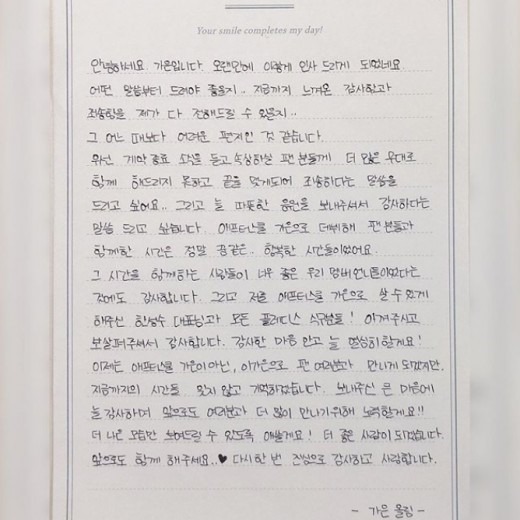 Your smile completes my day!
안녕하세요 가은입니다. 오랜만에 이렇게 인사 드리게 되었네요
어떤 말씀부터 드려야 좋을지.. 지금까지 느껴온 감사함과
죄송함을 제가 다 전해드릴 수 있을지..
그 어느 때보다 어려운 편지인 것 같습니다.
우선 계약 종료 소식을 듣고 속상하실 팬 분들께 더 많은 무대로
함께 해드리지 못하고 끝을 맺게되어 죄송하다는 말씀을
드리고 싶어요.. 그리고 늘 따뜻한 응원을 보내주셔서 감사하다는
말씀 드리고 싶습니다. 애프터스쿨 가은으로 데뷔해 팬 분들과
함께한 시간은 정말 꿈같은.. 행복한 시간들이었어요.
그 시간을 함께하는 사람들이 너무 좋은 우리 멤버 언니들이었다는
것에도 감사합니다. 그리고 저를 애프터스쿨 가은으로 살 수 있게
해주신 한성수 대표님과 모든 플레디스 식구분들! 아껴주시고
보살펴주셔서 감사합니다. 감사한 마음 안고 늘 열심히 할게요!
이제는 애프터스쿨 가은이 아닌, 이가은으로 팬 여러분과 만나게 되겠지만,
지금까지의 시간들 잊지 않고 기억하겠습니다. 보내주신 큰 마음에
늘 감사하며 앞으로도 여러분과 더 많이 만나기위해 노력할게요!!
더 나은 모습만 보여드릴 수 있도록 애쓸게요! 더 좋은 사람이 되겠습니다.
앞으로도 함께 해주세요..♥ 다시 한 번 진심으로 감사하고 사랑합니다.
- 가은 올림 -